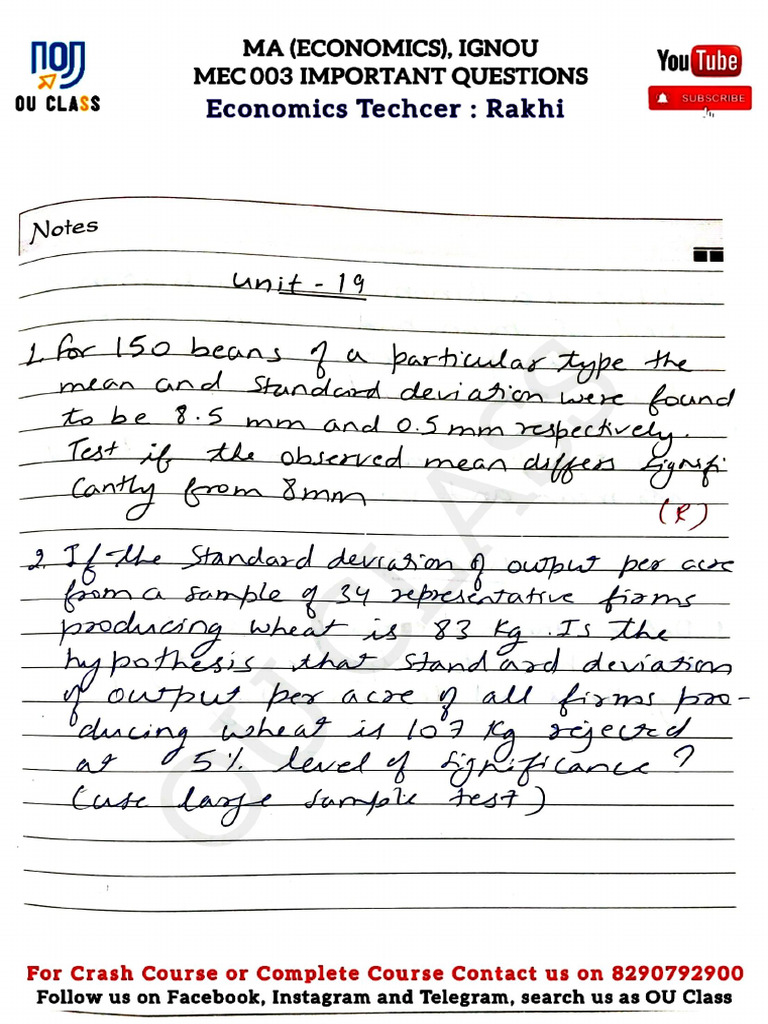 OU CLASS
MA (ECONOMICS), IGNOU
MEC 003 IMPORTANT QUESTIONS
Economics Techcer : Rakhi
YouTube
SUBSCRIBE
Notes
Unit - 19
1. For 150 beans of a particular type the
mean and standard deviation were found
to be 8.5 mm and 0.5 mm respectively.
Test if the observed mean differs signifi
cantly from 8mm
(R)
2. If the standard deviation of output per acre
from a sample of 34 representative firms
producing wheat is 83 kg. Is the
hypothesis that standard deviation
of output per acre of all firms pro-
ducing wheat is 107 kg rejected
at 5% level of significance?
(use large sample test)
OU CLASS
For Crash Course or Complete Course Contact us on 8290792900
Follow us on Facebook, Instagram and Telegram, search us as OU Class